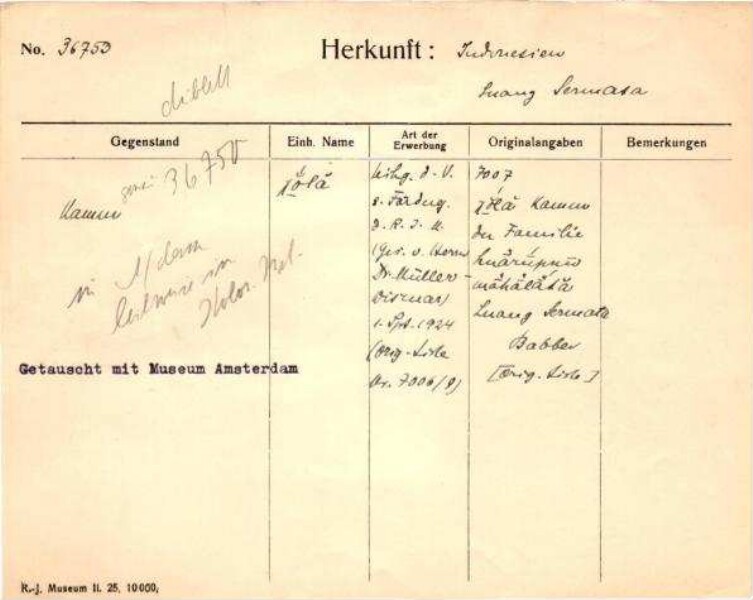 No. 36753
Herkunft: Indonesien
Luang Sermata
Gegenstand
Einh. Name
Art der Erwerbung
Originalangaben
Bemerkungen
36750
Kamm
in A/dam
leihweise im
Kolon. Inst.
Getauscht mit Museum Amsterdam
d. V.
z. Fördrg.
d. R. J. M.
(Ges. v. Herrn
Dr. Müller-
Wismar)
1. Spt. 1924
(Orig.-Liste
Nr. 7006/9)
7007
Kamm
der Familie
Luang Sermata
Babber
[Orig.-Liste]
R.-J. Museum II. 25, 10000,